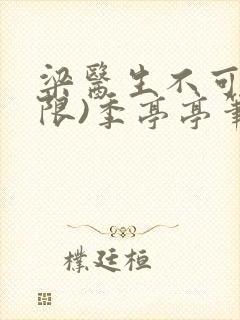 梁醫生不可
限)季亭亭筆
樸廷桓